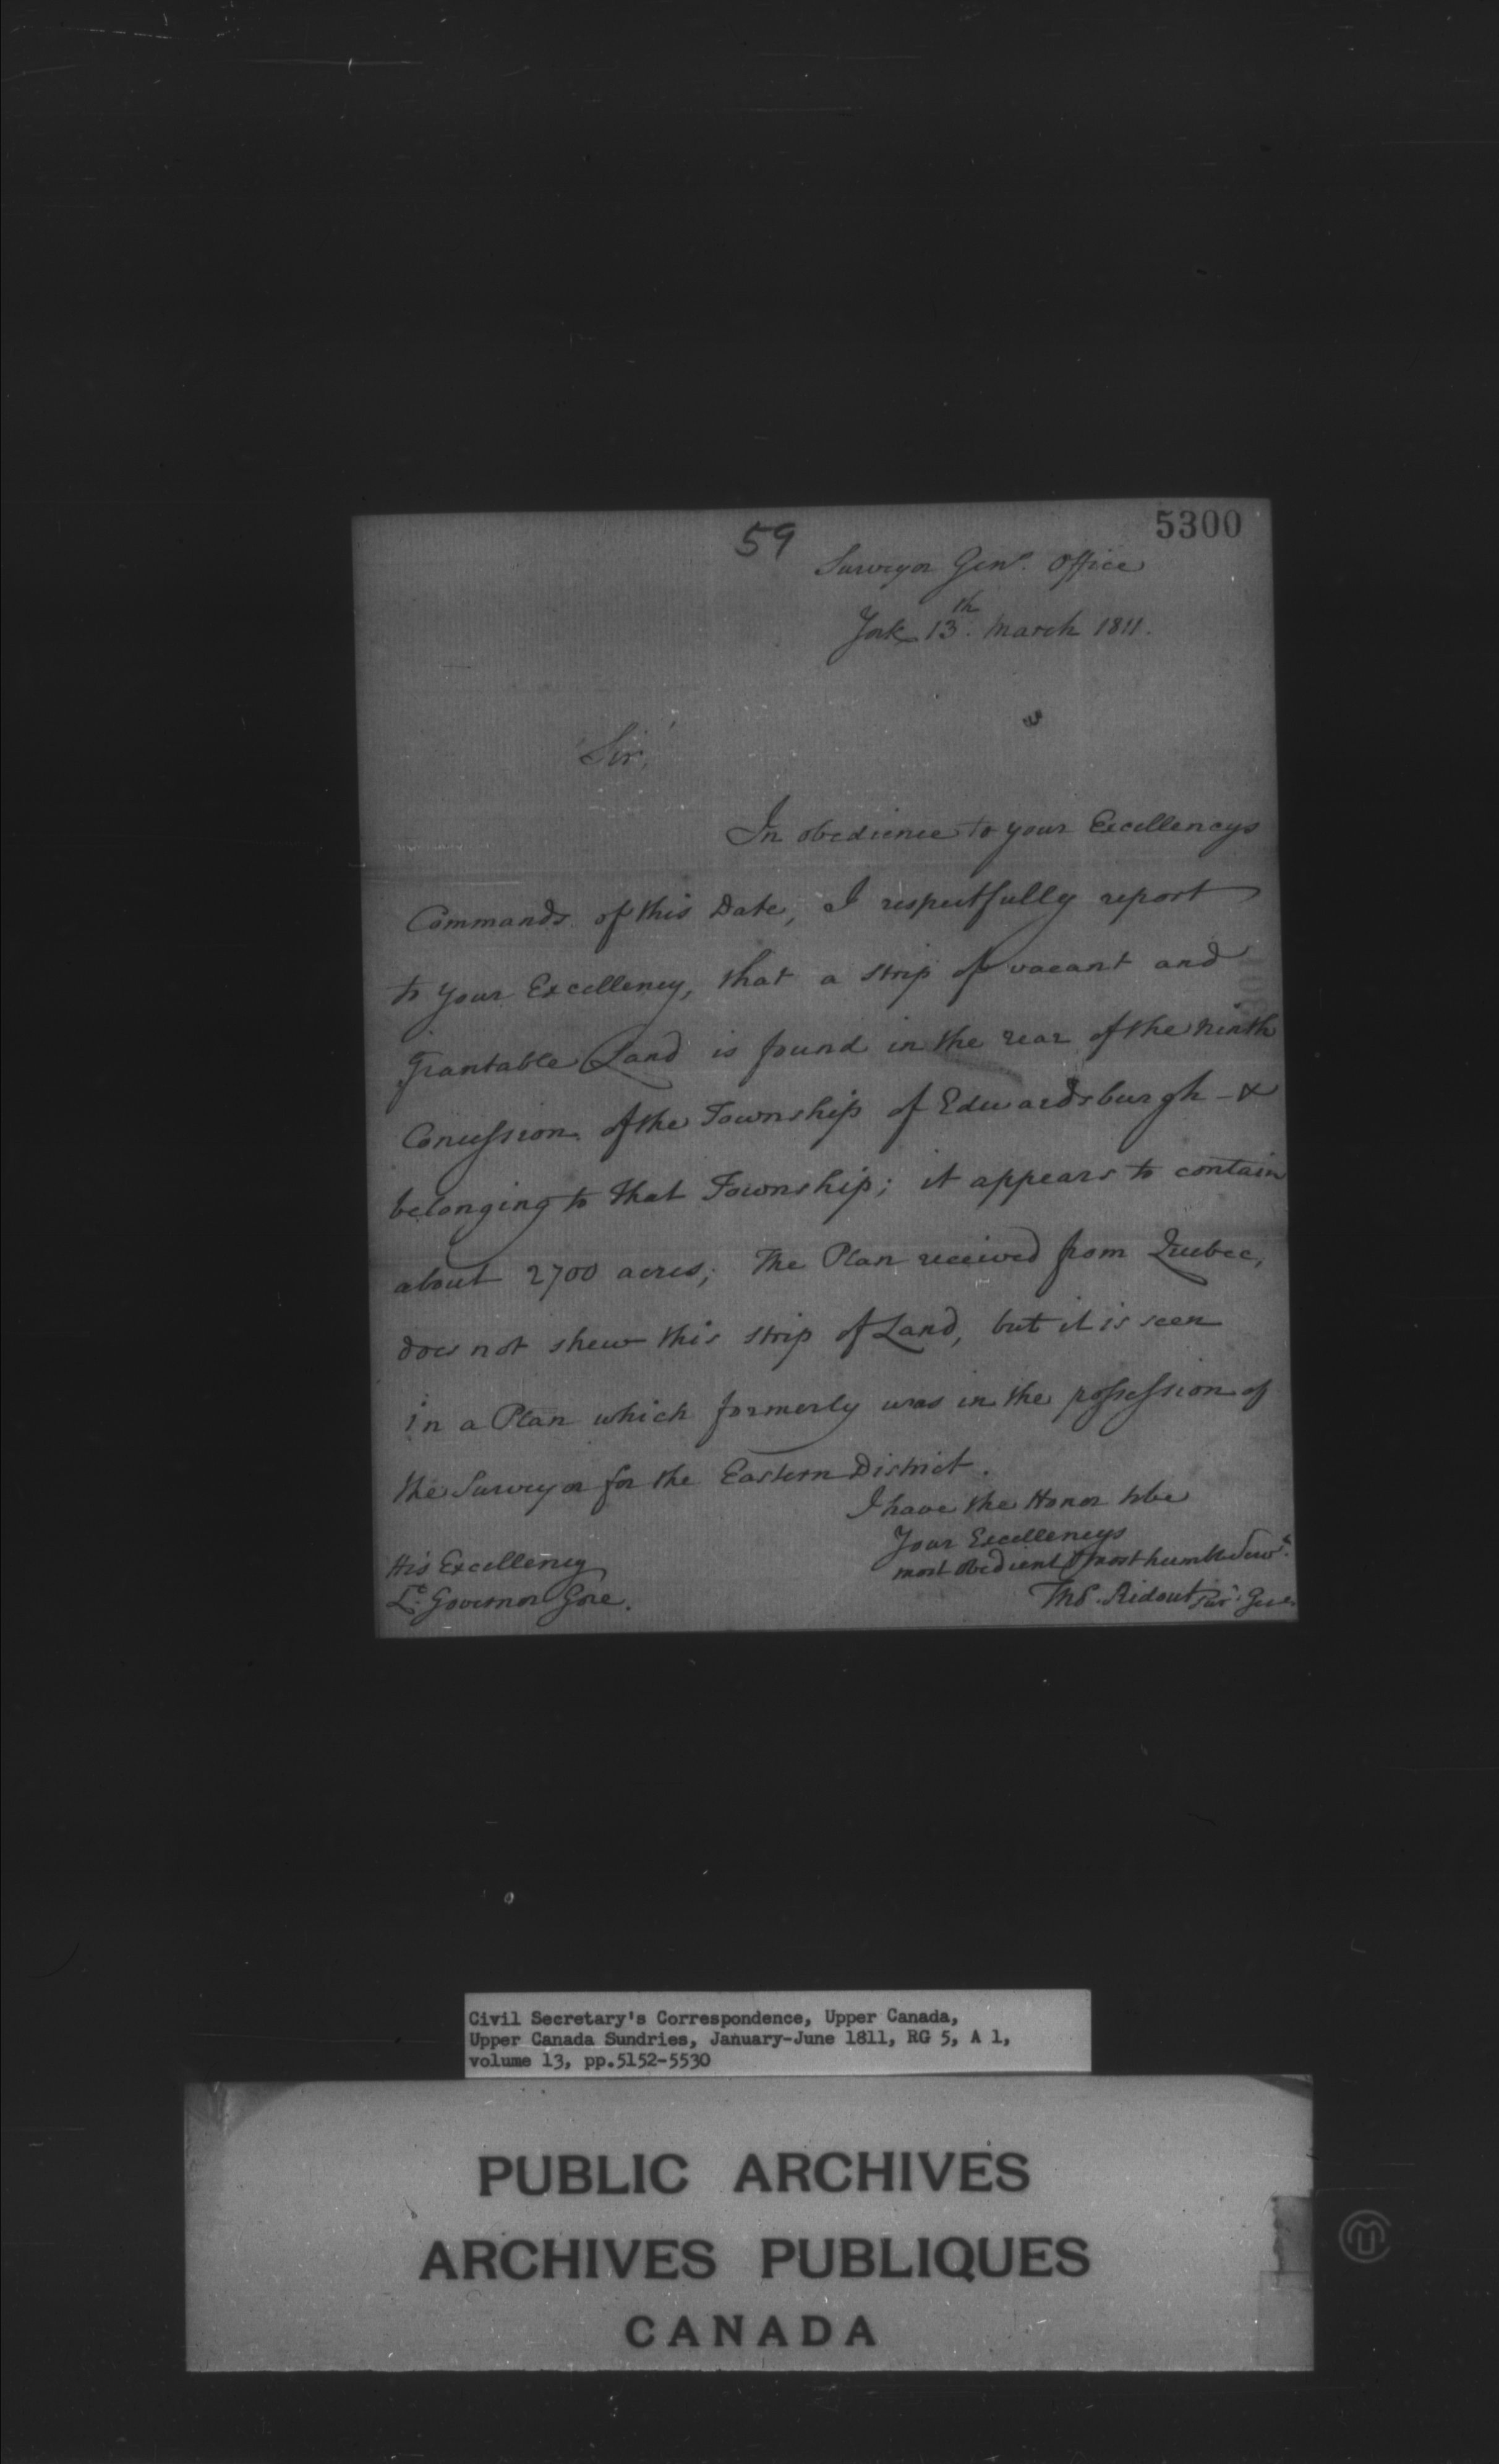 59
5300
Surveyor Genl. Office
York 13th. March 1811.
Sir,
In obedience to your Excellencys
Commands of this Date, I respectfully report
to your Excellency, that a strip of vacant and
grantable Land is found in the rear of the ninth
Concession of the Township of Edwardsburgh - &
belonging to that Township; it appears to contain
about 2700 acres; The Plan received from Quebec,
does not shew this strip of Land, but it is seen
in a Plan which formerly was in the possession of
the Surveyor for the Eastern District.
I have the Honor to be
Your Excellencys
most obedient & most humble Servt.
Thos. Ridout Surr. Genl.
His Excellency
Lt. Governor Gore.
Civil Secretary's Correspondence, Upper Canada,
Upper Canada Sundries, January-June 1811, RG 5, A 1,
volume 13, pp.5152-5530
PUBLIC ARCHIVES
ARCHIVES PUBLIQUES
CANADA